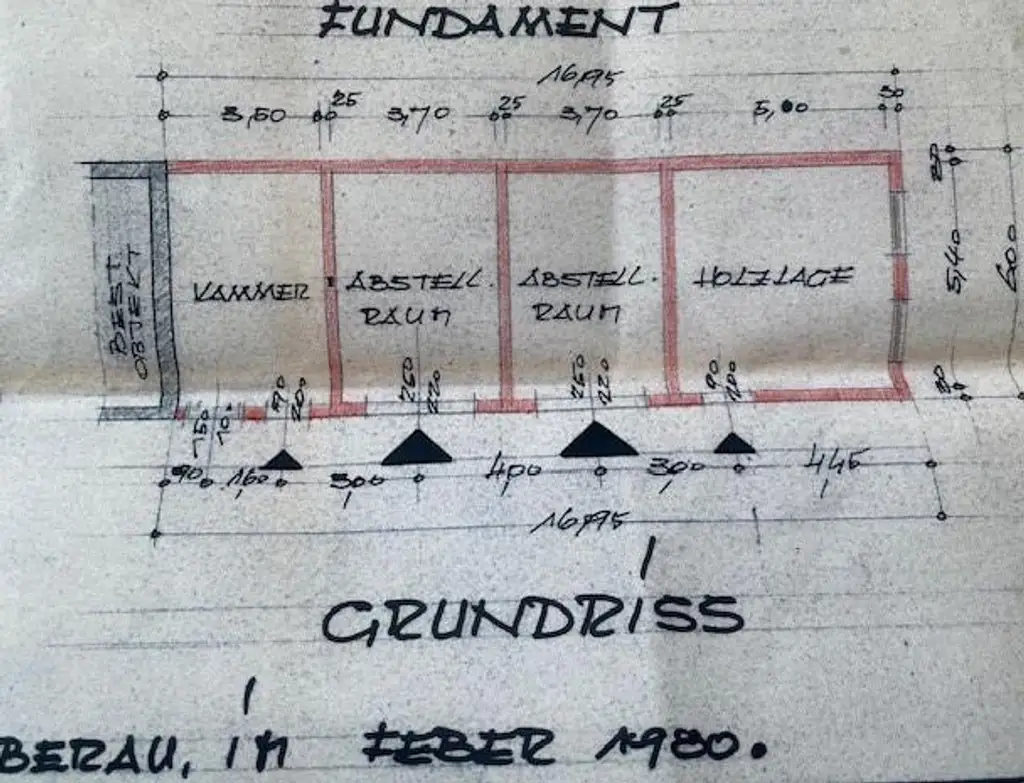 FUNDAMENT
16,95
3,50 25 3,70 25 3,70 25 5,00 30
30
5,40
6,00
30
BEST.
OBJEKT
KAMMER
ABSTELL.
RAUM
ABSTELL.
RAUM
HOLZLAGE
150
70
90
200
260
220
260
220
90
200
90 1,60 3,00 4,00 3,00 4,45
16,95
GRUNDRISS
BERAU, IM FEBER 1980.